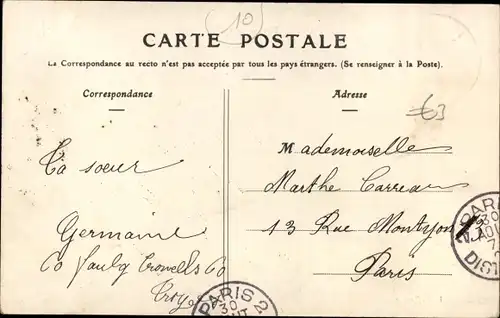 10
CARTE POSTALE
La Correspondance au recto n'est pas acceptée par tous les pays étrangers. (Se renseigner à la Poste).
Correspondance
Adresse
€3
Ta soeur
Germaine
Mademoiselle
Marthe Carreau
13 Rue Montyon
Paris
PARIS 2
30
PARIS
30
DIST